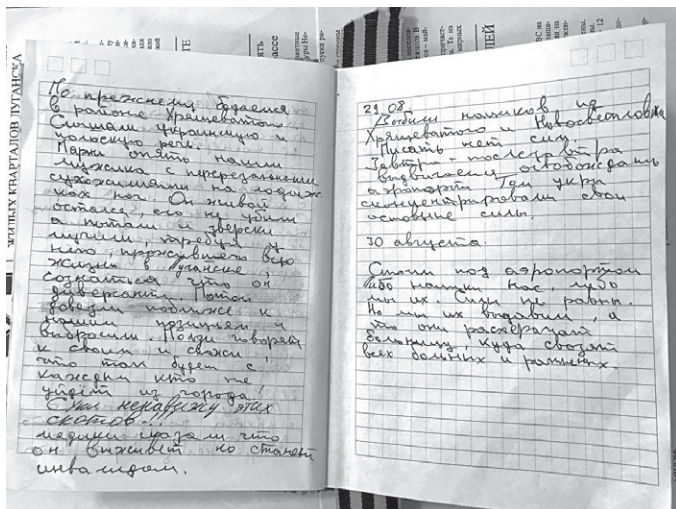 По прежнему бодаемся
в районе Хрящеватого
Слышали украинскую и
польскую речь.
Парни опять нашли
мужика с перерезанными
сухожилиями на лодыж
ках ног. Он живой
остался, его не убили
а пытали и зверски
мучили, требуя у
него, прожившего всю
жизнь в Луганске,
сознаться что он
диверсант. Потом
довезли поближе к
нашим позициям и
выбросили. Ползи говорят
к своим и скажи
что так будет с
каждым кто не
уйдёт из города!
Как ненавижу этих
скотов!!!
медики сказали что
он выживет но станет
инвалидом.
29.08.
Выбили нациков из
Хрящеватого и Новосветловки
Писать нет сил
Завтра - послезавтра
выдвигаемся освобождать
аэропорт. Там укры
сконцентрировали свои
основные силы.
30 августа.
Стоим под аэропортом
Либо нацики нас, либо
мы их. Силы не равны.
Но мы их выдавим, а
то они расхерачат
больницу, куда свозят
всех больных и раненых.
ЖИЛЫХ КВАРТАЛОВ ЛУГАНСКА